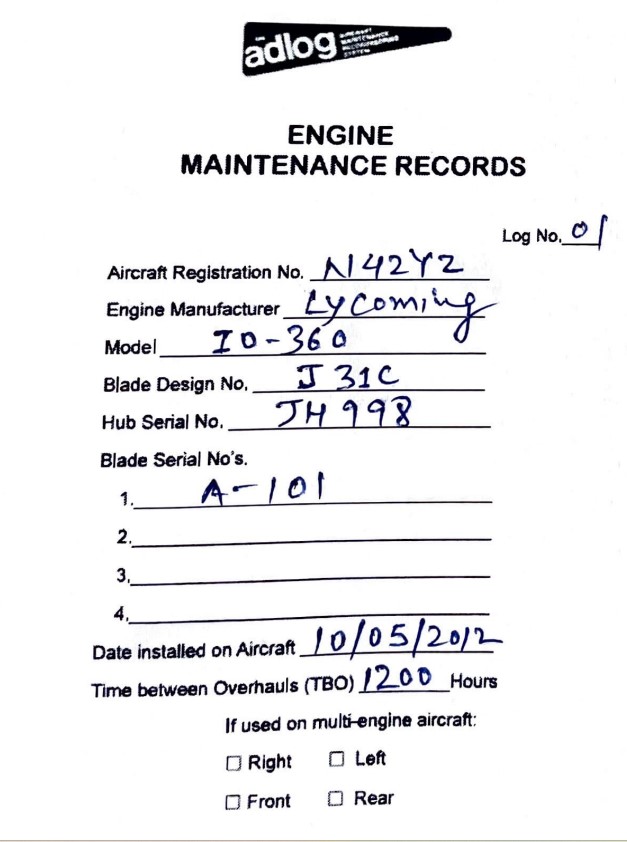 adlog AIRCRAFT
MAINTENANCE
RECORDKEEPING
SYSTEM
ENGINE
MAINTENANCE RECORDS
Log No. 01
Aircraft Registration No. N42Y2
Engine Manufacturer Lycoming
Model IO-360
Blade Design No. J31C
Hub Serial No. JH998
Blade Serial No's.
1. A-101
2.
3.
4.
Date installed on Aircraft 10/05/2012
Time between Overhauls (TBO) 1200 Hours
If used on multi-engine aircraft:
Right Left
Front Rear